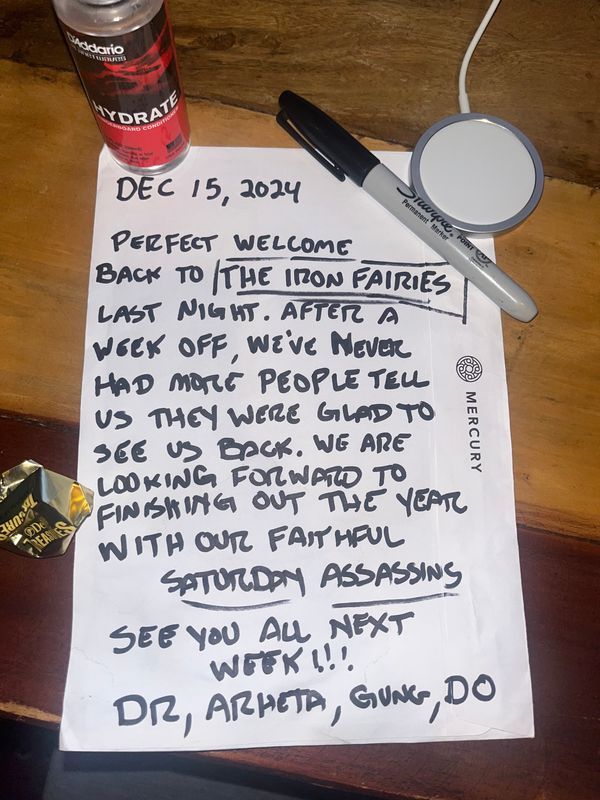 D'Addario
HYDRATE
FINGERBOARD CONDITIONER
DEC 15, 2024
Sharpie
Permanent Marker
POINT
PERFECT WELCOME
BACK TO THE IRON FAIRIES
LAST NIGHT. AFTER A
WEEK OFF, WE'VE NEVER
HAD MORE PEOPLE TELL
US THEY WERE GLAD TO
SEE US BACK. WE ARE
LOOKING FORWARD TO
FINISHING OUT THE YEAR
WITH OUR FAITHFUL
SATURDAY ASSASSINS
SEE YOU ALL NEXT
WEEK!!!
DR, ARHETA, GUNG, DO
MERCURY